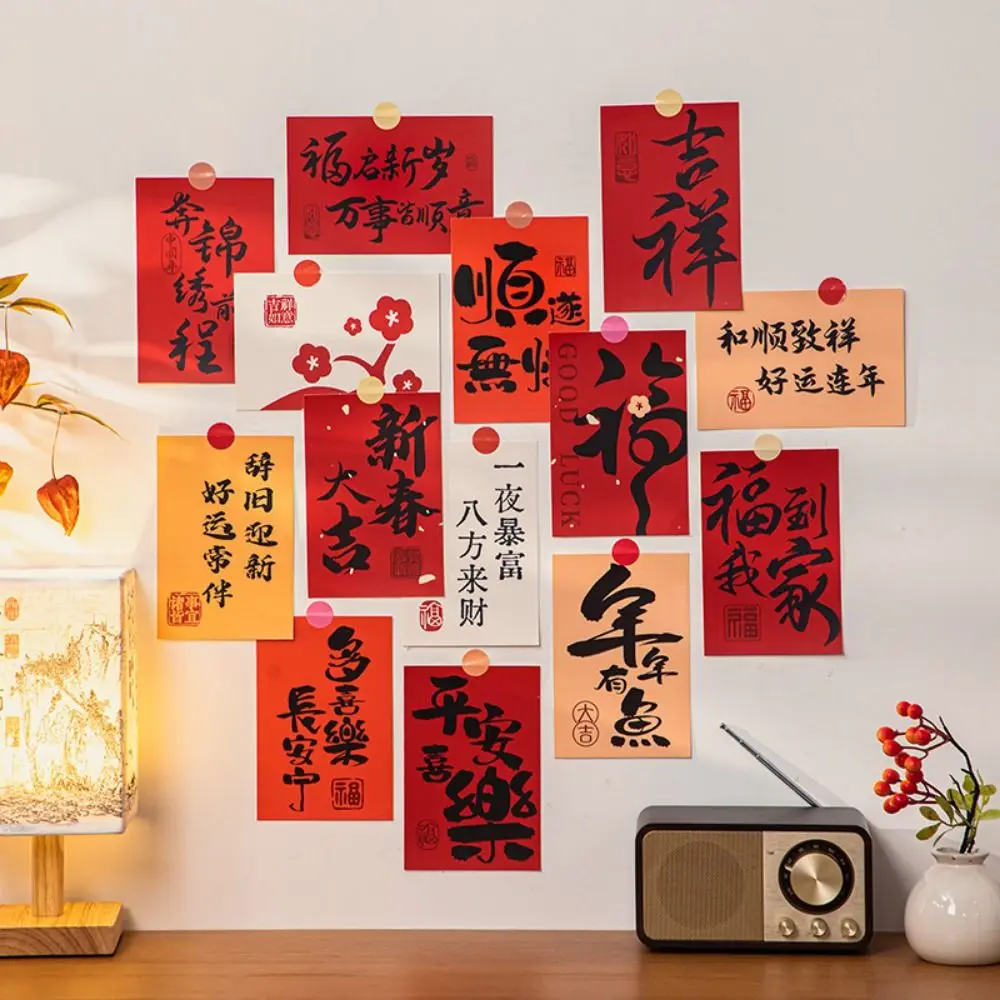 福启新岁
万事皆顺意
吉祥
如意
奔
锦
绣前
程
顺遂
無
福
吉祥
如意
福
GOOD LUCK
和顺致祥
好运连年
福
新春
大吉
辞旧迎新
好运常伴
一夜暴富
八方来财
福
福到
我家
福
年年
有魚
大吉
多喜樂
長安宁
福
平安
喜樂